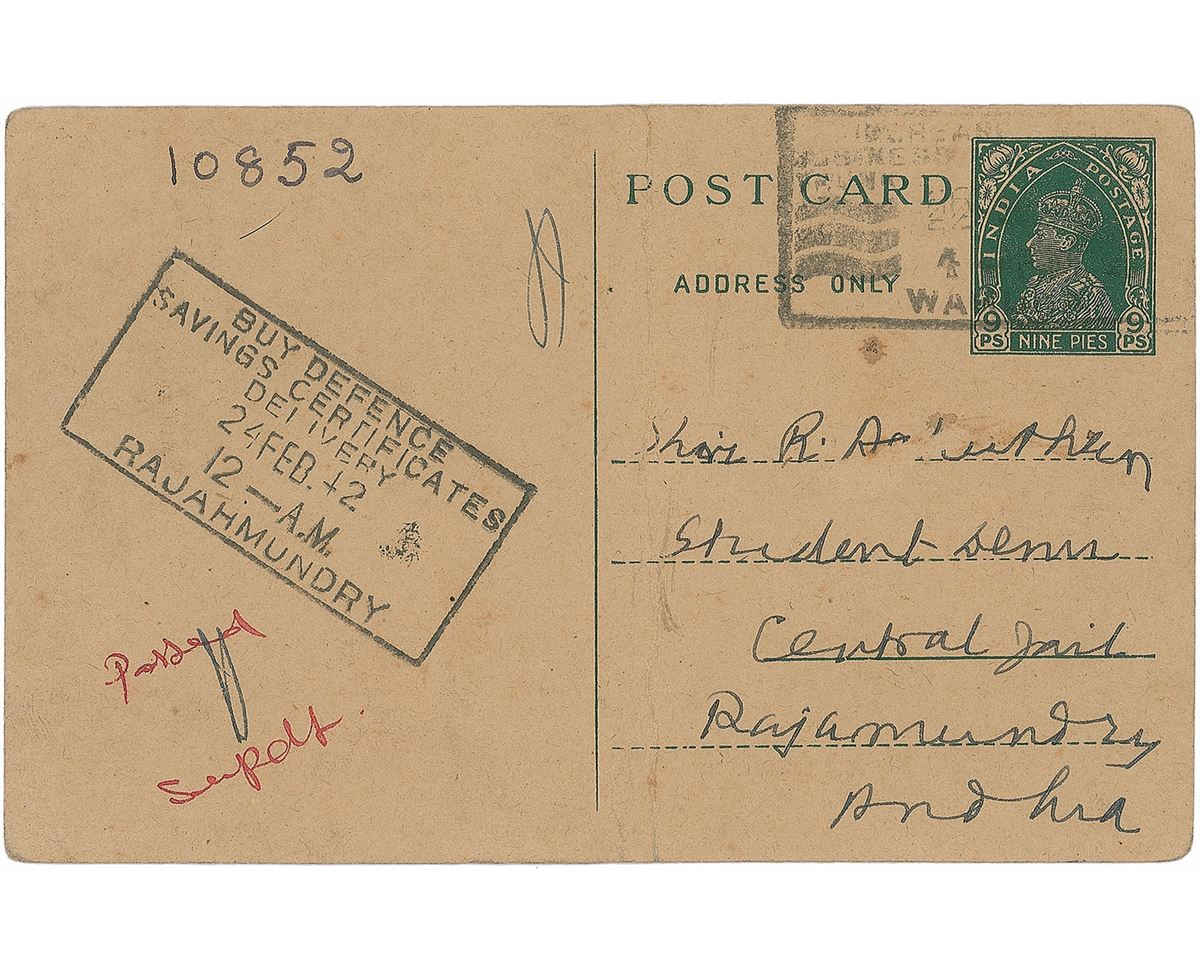 10852
BUY DEFENCE
SAVINGS CERTIFICATES
DELIVERY
24 FEB. 42
12—A.M.
RAJAHMUNDRY
Passed
Supdt.
POST CARD
ADDRESS ONLY
INDIA POSTAGE
9 PS
NINE PIES
9 PS
R.
Student
Central Jail
Rajamundry
Andhra